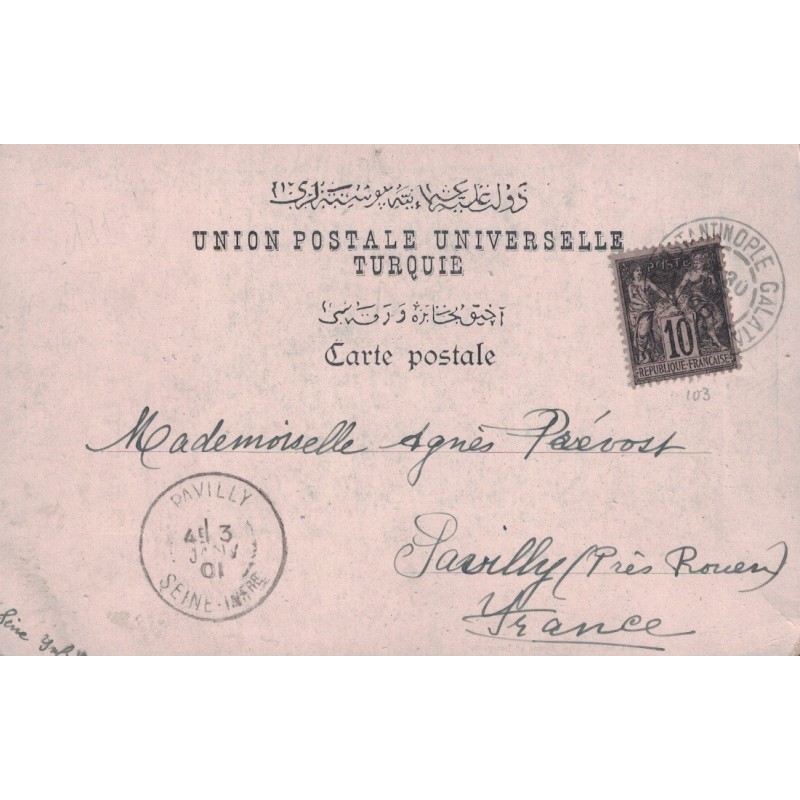 دولت عليه عثمانيه پوسته لرى
UNION POSTALE UNIVERSELLE
TURQUIE
آچيق مخابره ورقه سى
Carte postale
TANTINOPLE GALATA
30
POSTE
10
REPUBLIQUE FRANÇAISE
103
Mademoiselle Agnès Prévost
PAVILLY
3
JANV
01
SEINE-INFRE
Pavilly (Près Rouen)
France